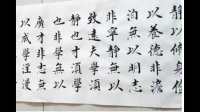 靜以修身儉
以養德非澹
泊無以明志
非寧靜無以
致遠夫學須
靜也才須學
也非學無以
廣才非志無
以成學淫漫